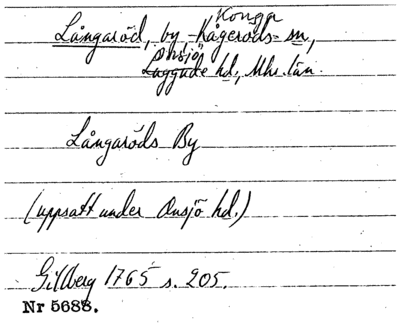 Konga
Långaröd, by Kågeröds sn,
Onsjö
Luggude hd, Mhs. län.
Långaröds By
(uppsatt under Onsjö hd.)
Gillberg 1765 s. 205.
Nr 5688.